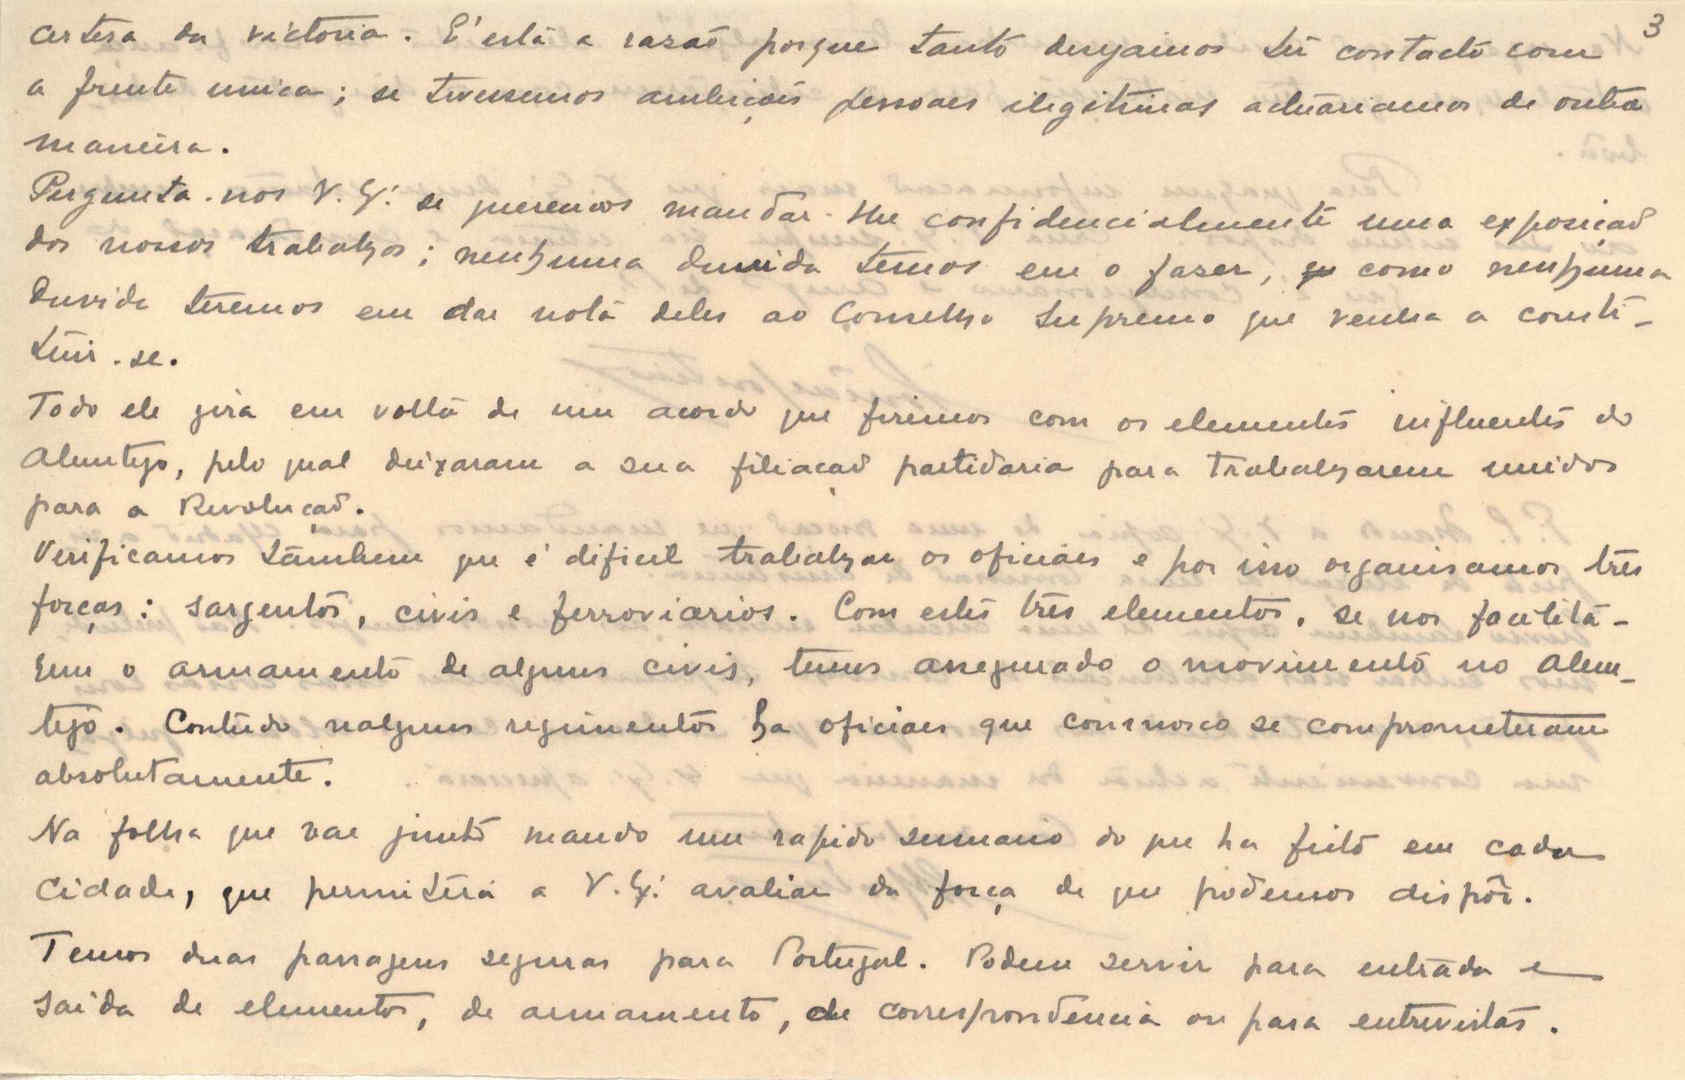 3
certesa da victoria. É esta a rasaõ porque tanto desejamos ter contacto com
a frente unica; se tivessemos ambições pessoaes ilegitimas actuariamos de outra
maneira.
Pergunta-nos V. Ex.ª se queremos mandar-lhe confidencialmente uma exposiçaõ
dos nossos trabalhos; nenhuma duvida temos em o fazer, como nenhuma
duvida teremos em dar nota deles ao Conselho Supremo que venha a consti-
tuir-se.
Todo ele gira em volta de um acordo que fizemos com os elementos influentes do
Alentejo, pelo qual deixaram a sua filiaçaõ partidaria para trabalharem unidos
para a Revoluçaõ.
Verificamos tambem que é dificil trabalhar os oficiaes e por isso organisamos três
forças: sargentos, civis e ferroviarios. Com estes três elementos, se nos facilita-
rem o armamento de alguns civis, temos assegurado o movimento no Alem-
tejo. Contudo nalguns regimentos ha oficiaes que comnosco se comprometeram
absolutamente.
Na folha que vae junto mando um rapido sumario do que ha feito em cada
cidade, que permitirá a V. Ex.ª avaliar da força de que podemos dispôr.
Temos duas passagens seguras para Portugal. Podem servir para entrada e
saída de elementos, de armamento, de correspondencia ou para entrevistas.